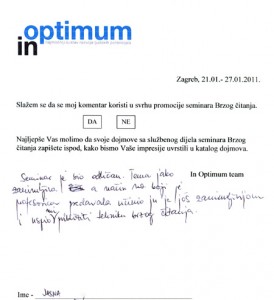 optimum
in
Zagreb, 21.01.- 27.01.2011.
Slažem se da se moj komentar koristi u svrhu promocije seminara Brzog čitanja.
DA NE
Najljepše Vas molimo da svoje dojmove sa službenog dijela seminara Brzog
čitanja zapišete ispod, kako bismo Vaše impresije uvrstili u katalog dojmova.
In Optimum team
Seminar je bio odličan. Tema jako
zanimljiva a način na koji je
predavala učinio ju je još zanimljivijom
i uspio približiti tehniku brzog čitanja.
Ime - JASNA